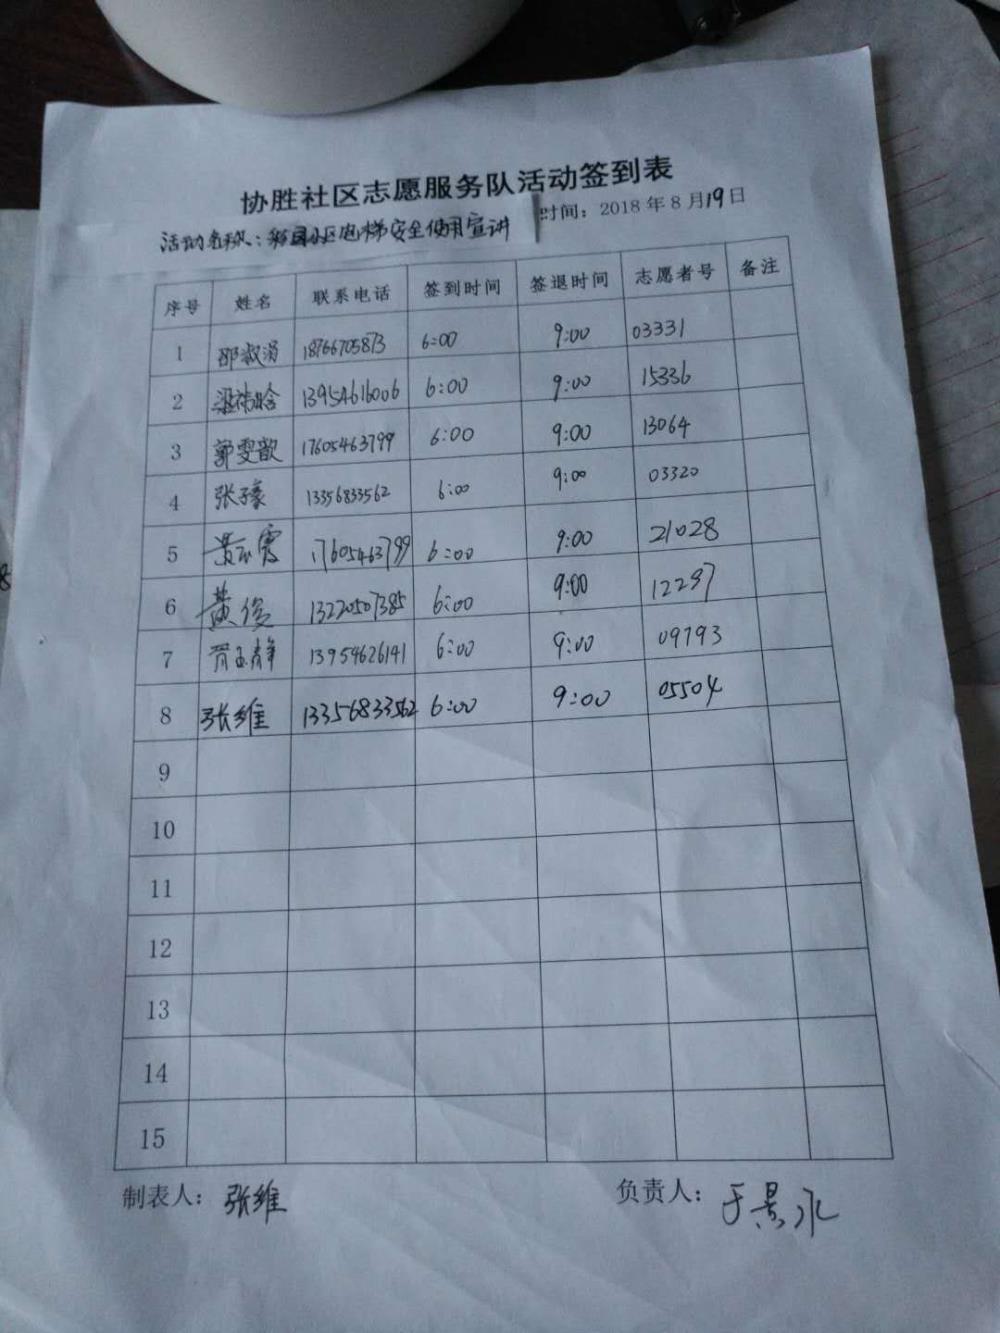 协胜社区志愿服务队活动签到表
时间：2018年8月19日
活动名称：小区电梯安全使用宣讲
序号 姓名 联系电话 签到时间 签退时间 志愿者号 备注
1 邵淑娟 18766705873 6:00 9:00 03331
2 梁祎晗 13954616006 6:00 9:00 15336
3 郭雯歆 17605463799 6:00 9:00 13064
4 张子豪 13356833562 6:00 9:00 03320
5 17605463799 6:00 9:00 21028
6 黄俊 13220507385 6:00 9:00 12297
7 玉静 13954626141 6:00 9:00 09793
8 张维 13356833562 6:00 9:00 05504
9
10
11
12
13
14
15
制表人：张维 负责人：于景水